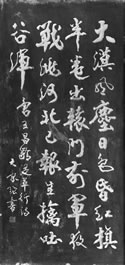 大漠風塵日色昏紅旗
半卷出轅門前軍夜
戰洮河北已報生擒吐
谷渾 王昌齡從軍行詩